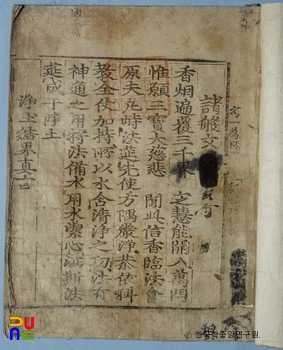 諸般文
香烟遍覆三千界 定慧能開八萬門
惟願三寶大慈悲 聞此信香臨法會
原夫凢峙法筵先使方隅嚴淨恭依科
教全仗加持所以水含清淨之功法有
神通之用將法備水用水潔心洒斯法
筵成于淨土
淨土結界真言
한국학중앙연구원